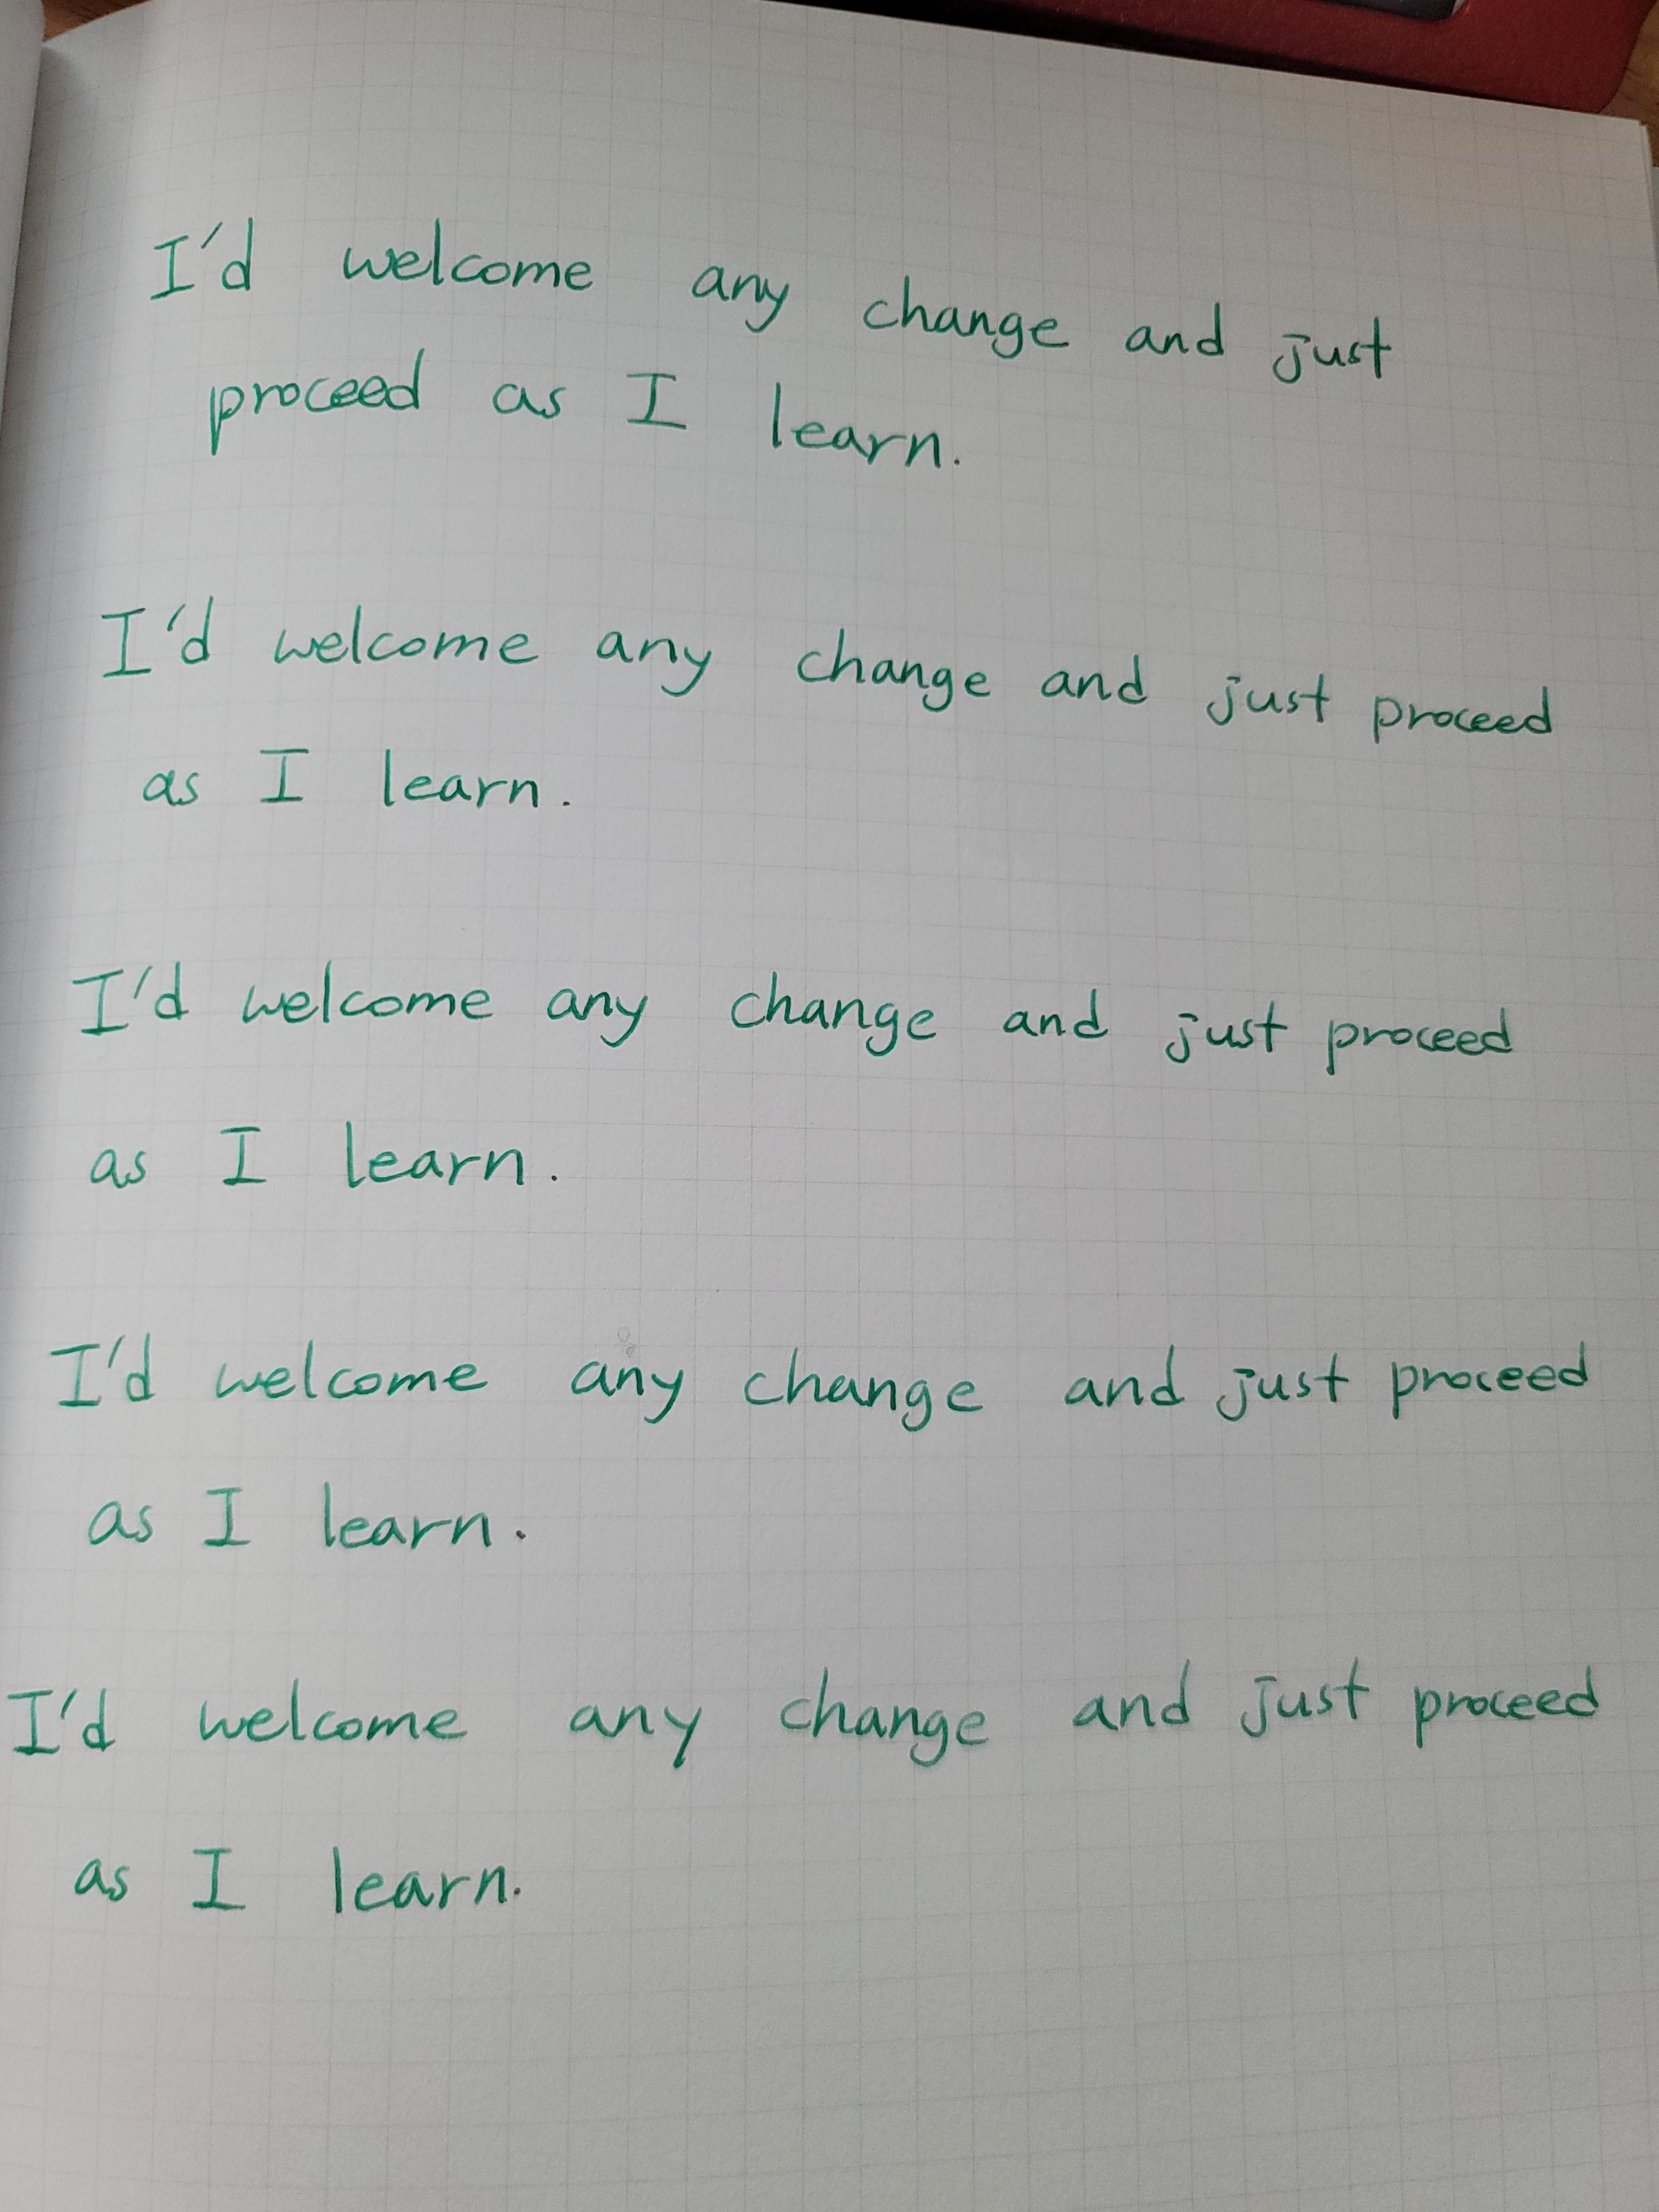 I'd welcome any change and just
proceed as I learn.
I'd welcome any change and just proceed
as I learn.
I'd welcome any change and just proceed
as I learn.
I'd welcome any change and just proceed
as I learn.
I'd welcome any change and just proceed
as I learn.